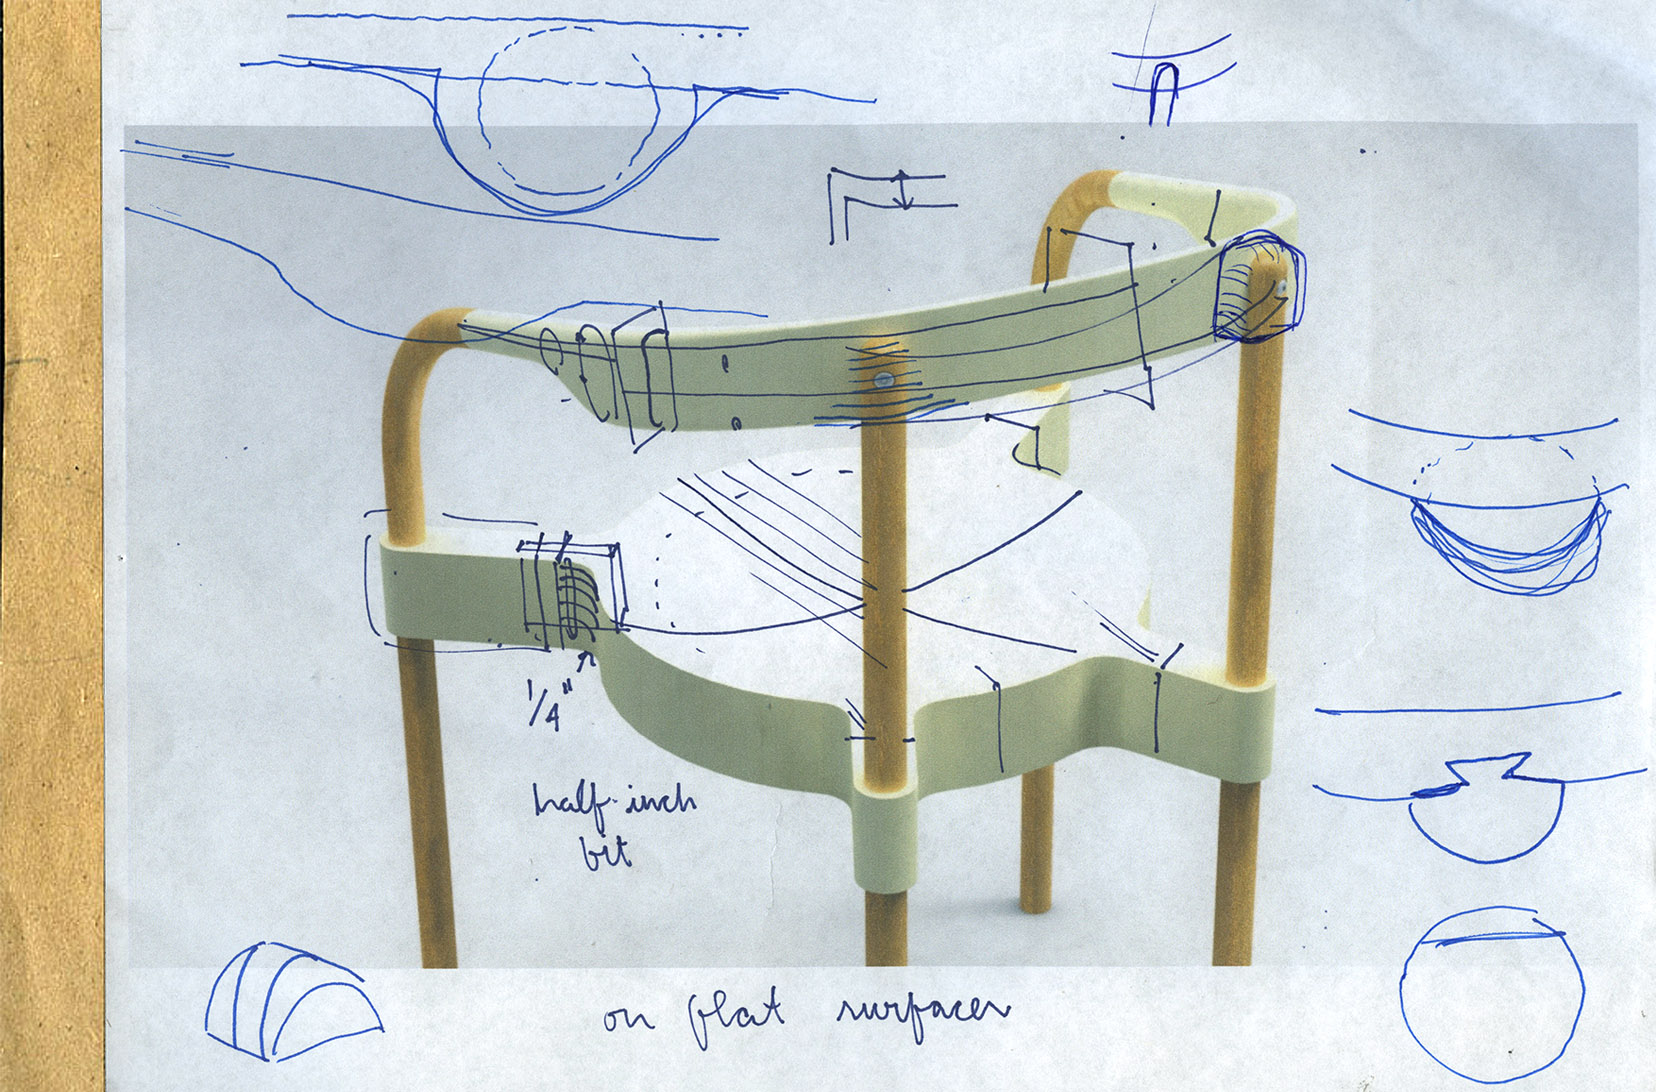 1/4"
half-inch
bit
on flat surfaces